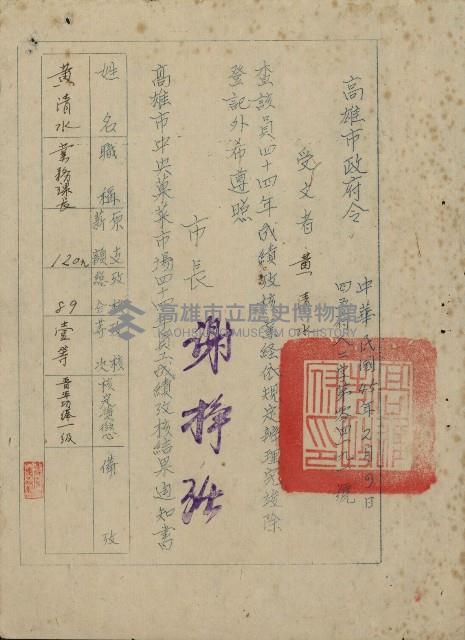 高雄市政府令
中華民國45年2月9日
受文者 黃清水
查該員四十四年成績攷核業經依規定辦理完竣除
登記外希遵照
市長 謝掙強
高雄市中央菓菜市場四十四年員工成績攷核結果通知書
姓名 職稱 原支薪額 攷核總分 攷核等次 核定獎懲 備攷
黃清水 業務課長 120元 89 壹等 晉年功俸一級
高雄市立歷史博物館
KAOHSIUNG MUSEUM OF HISTORY